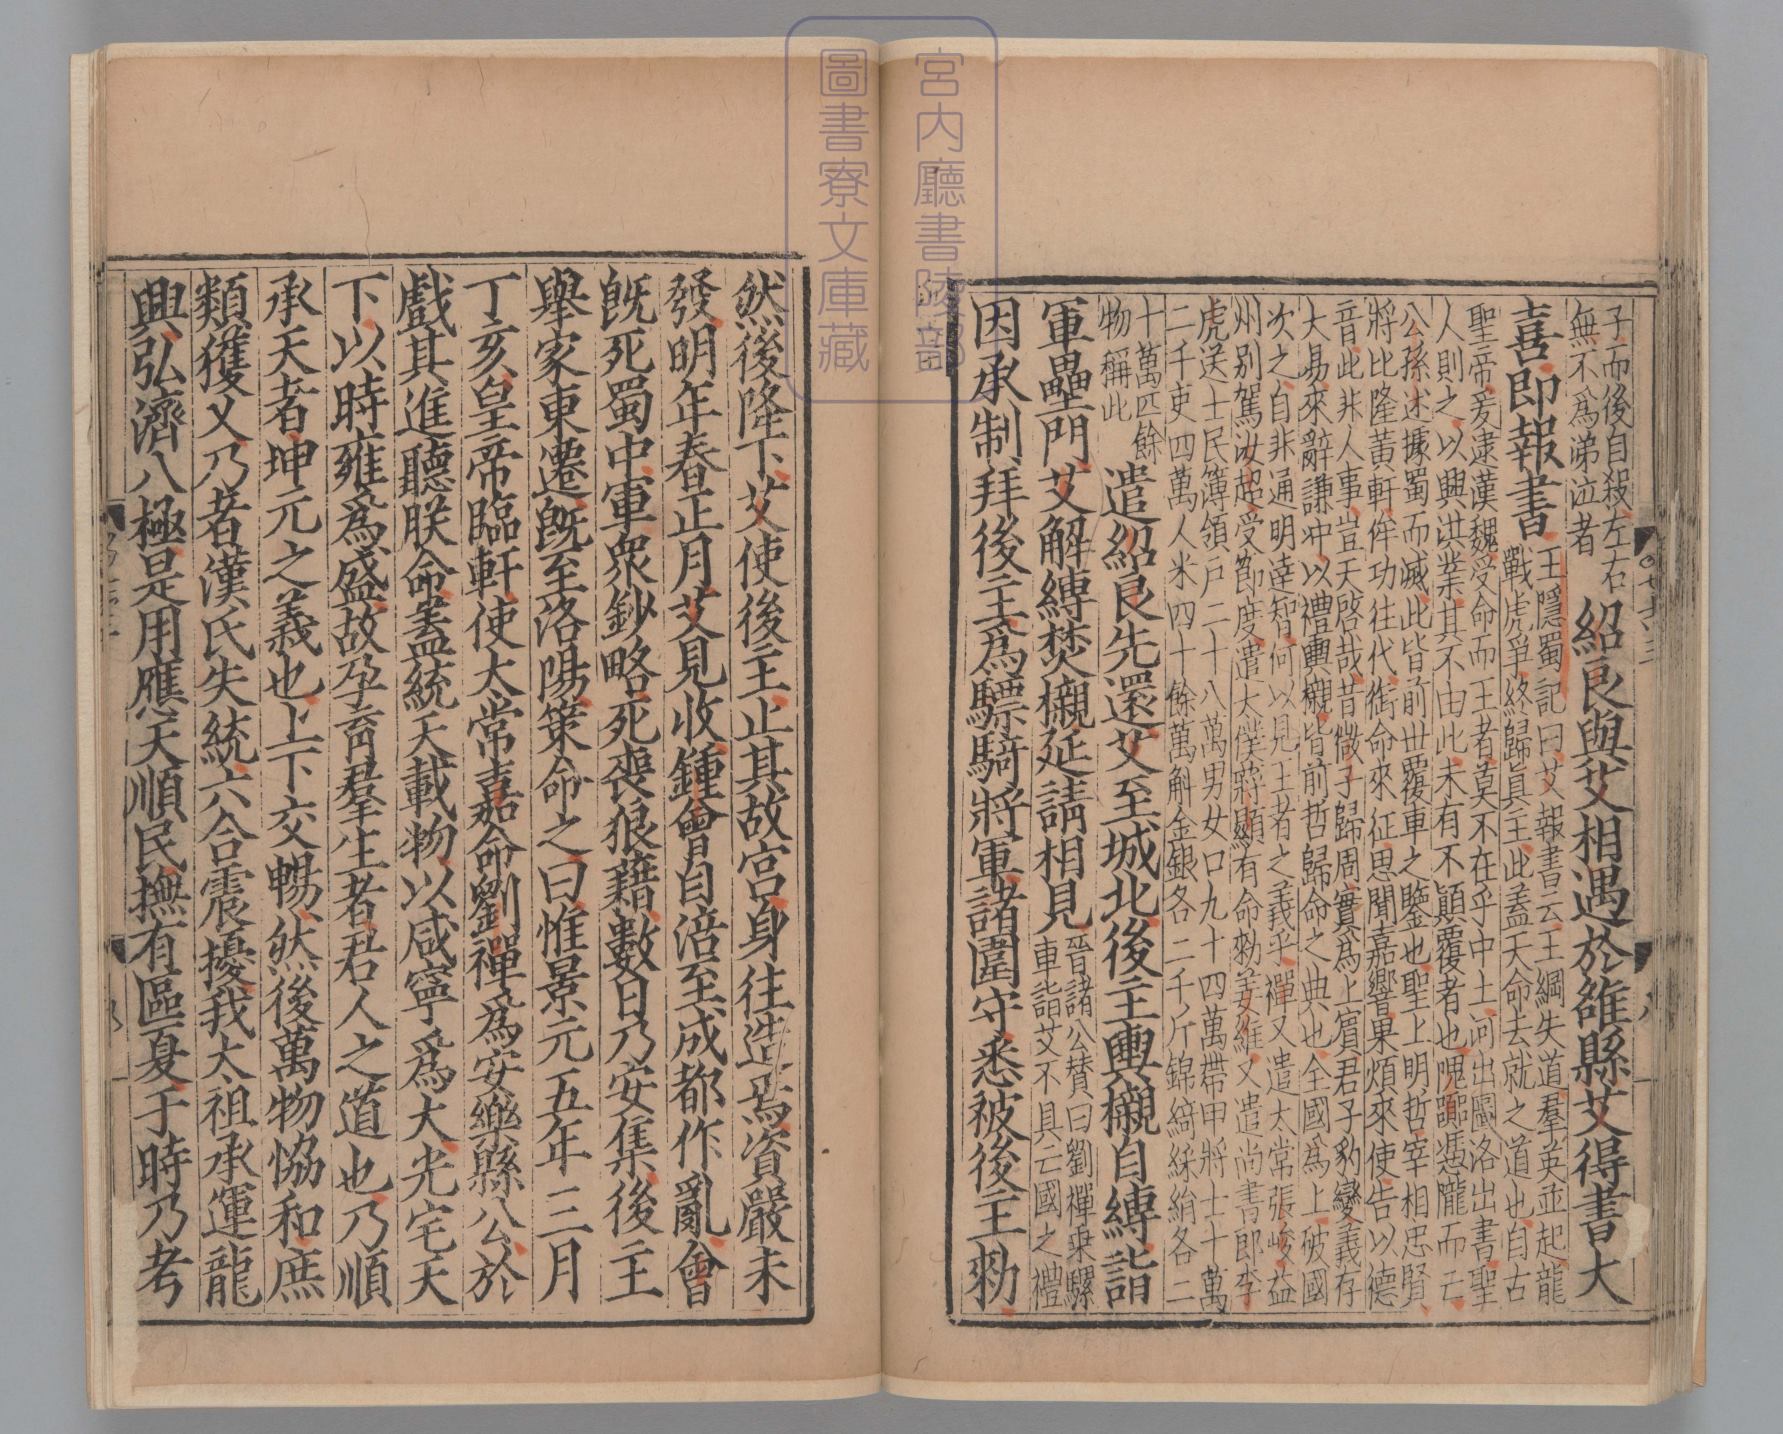 宮内廳書陵部
圖書寮文庫藏
子而後自殺左右
無不爲涕泣者
紹良與艾相遇於雒縣艾得書大
喜即報書
王隱蜀記曰艾報書云王綱失道羣英並起龍
戰虎爭終歸真主此蓋天命去就之道也自古
聖帝爰逮漢魏受命而王者莫不在乎中土河出圖洛出書聖
人則之以興洪業其不由此未有不顛覆者也隗囂憑隴而亡
公孫述據蜀而滅此皆前世覆車之鑒也聖上明哲宰相忠賢
將比隆黃軒侔功往代銜命來征思聞嘉響果煩來使告以德
音此非人事豈天啓哉昔微子歸周實爲上賓君子豹變義存
大易來辭謙沖以禮輿櫬皆前哲歸命之典也全國爲上破國
次之自非通明達智何以見王者之義乎禪又遣太常張峻益
州别駕汝超受節度遣大僕蔣顯有命勑姜維又遣尚書郎李
虎送士民簿領戶二十八萬男女口九十四萬帶甲將士十萬
二千吏四萬人米四十餘萬斛金銀各二千斤錦綺綵絹各二
十萬匹餘
物稱此
遣紹良先還艾至城北後主輿櫬自縛詣
軍壘門艾解縛焚櫬延請相見
晉諸公贊曰劉禪乘騾
車詣艾不具亡國之禮
因承制拜後主爲驃騎將軍諸圍守悉被後主勑
然後降下艾使後主止其故宮身往造焉資嚴未
發明年春正月艾見收鍾會自涪至成都作亂會
旣死蜀中軍衆鈔略死喪狼藉數日乃安集後主
舉家東遷旣至洛陽策命之曰惟景元五年三月
丁亥皇帝臨軒使大常嘉命劉禪爲安樂縣公於
戲其進聽朕命蓋統天載物以咸寧爲大光宅天
下以時雍爲盛故孕育羣生者君人之道也乃順
承天者坤元之義也上下交暢然後萬物協和庶
類獲乂乃者漢氏失統六合震擾我太祖承運龍
興弘濟八極是用應天順民撫有區夏于時乃考